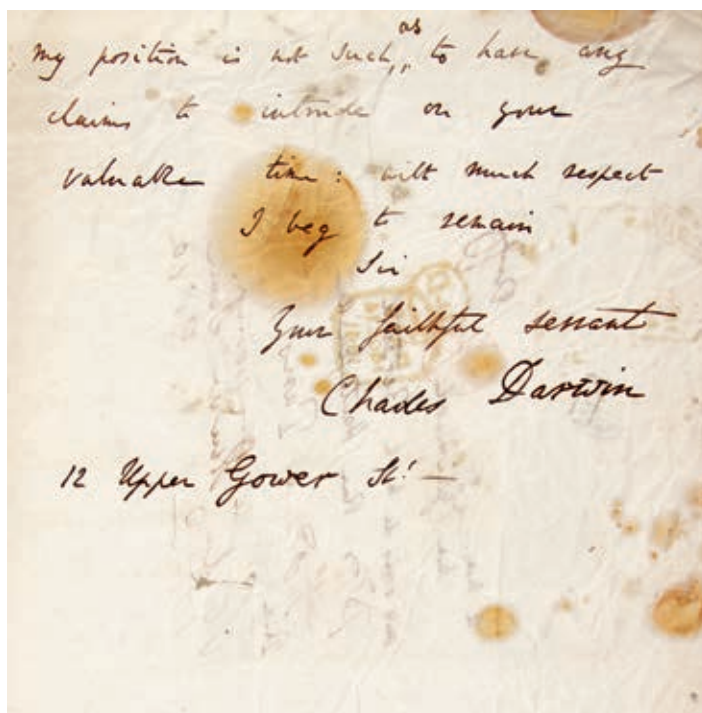 my position is not such, as to have any
claims to intrude on your
valuable time: with much respect
I beg to remain
Sir
Your faithful servant
Charles Darwin
12 Upper Gower St.—